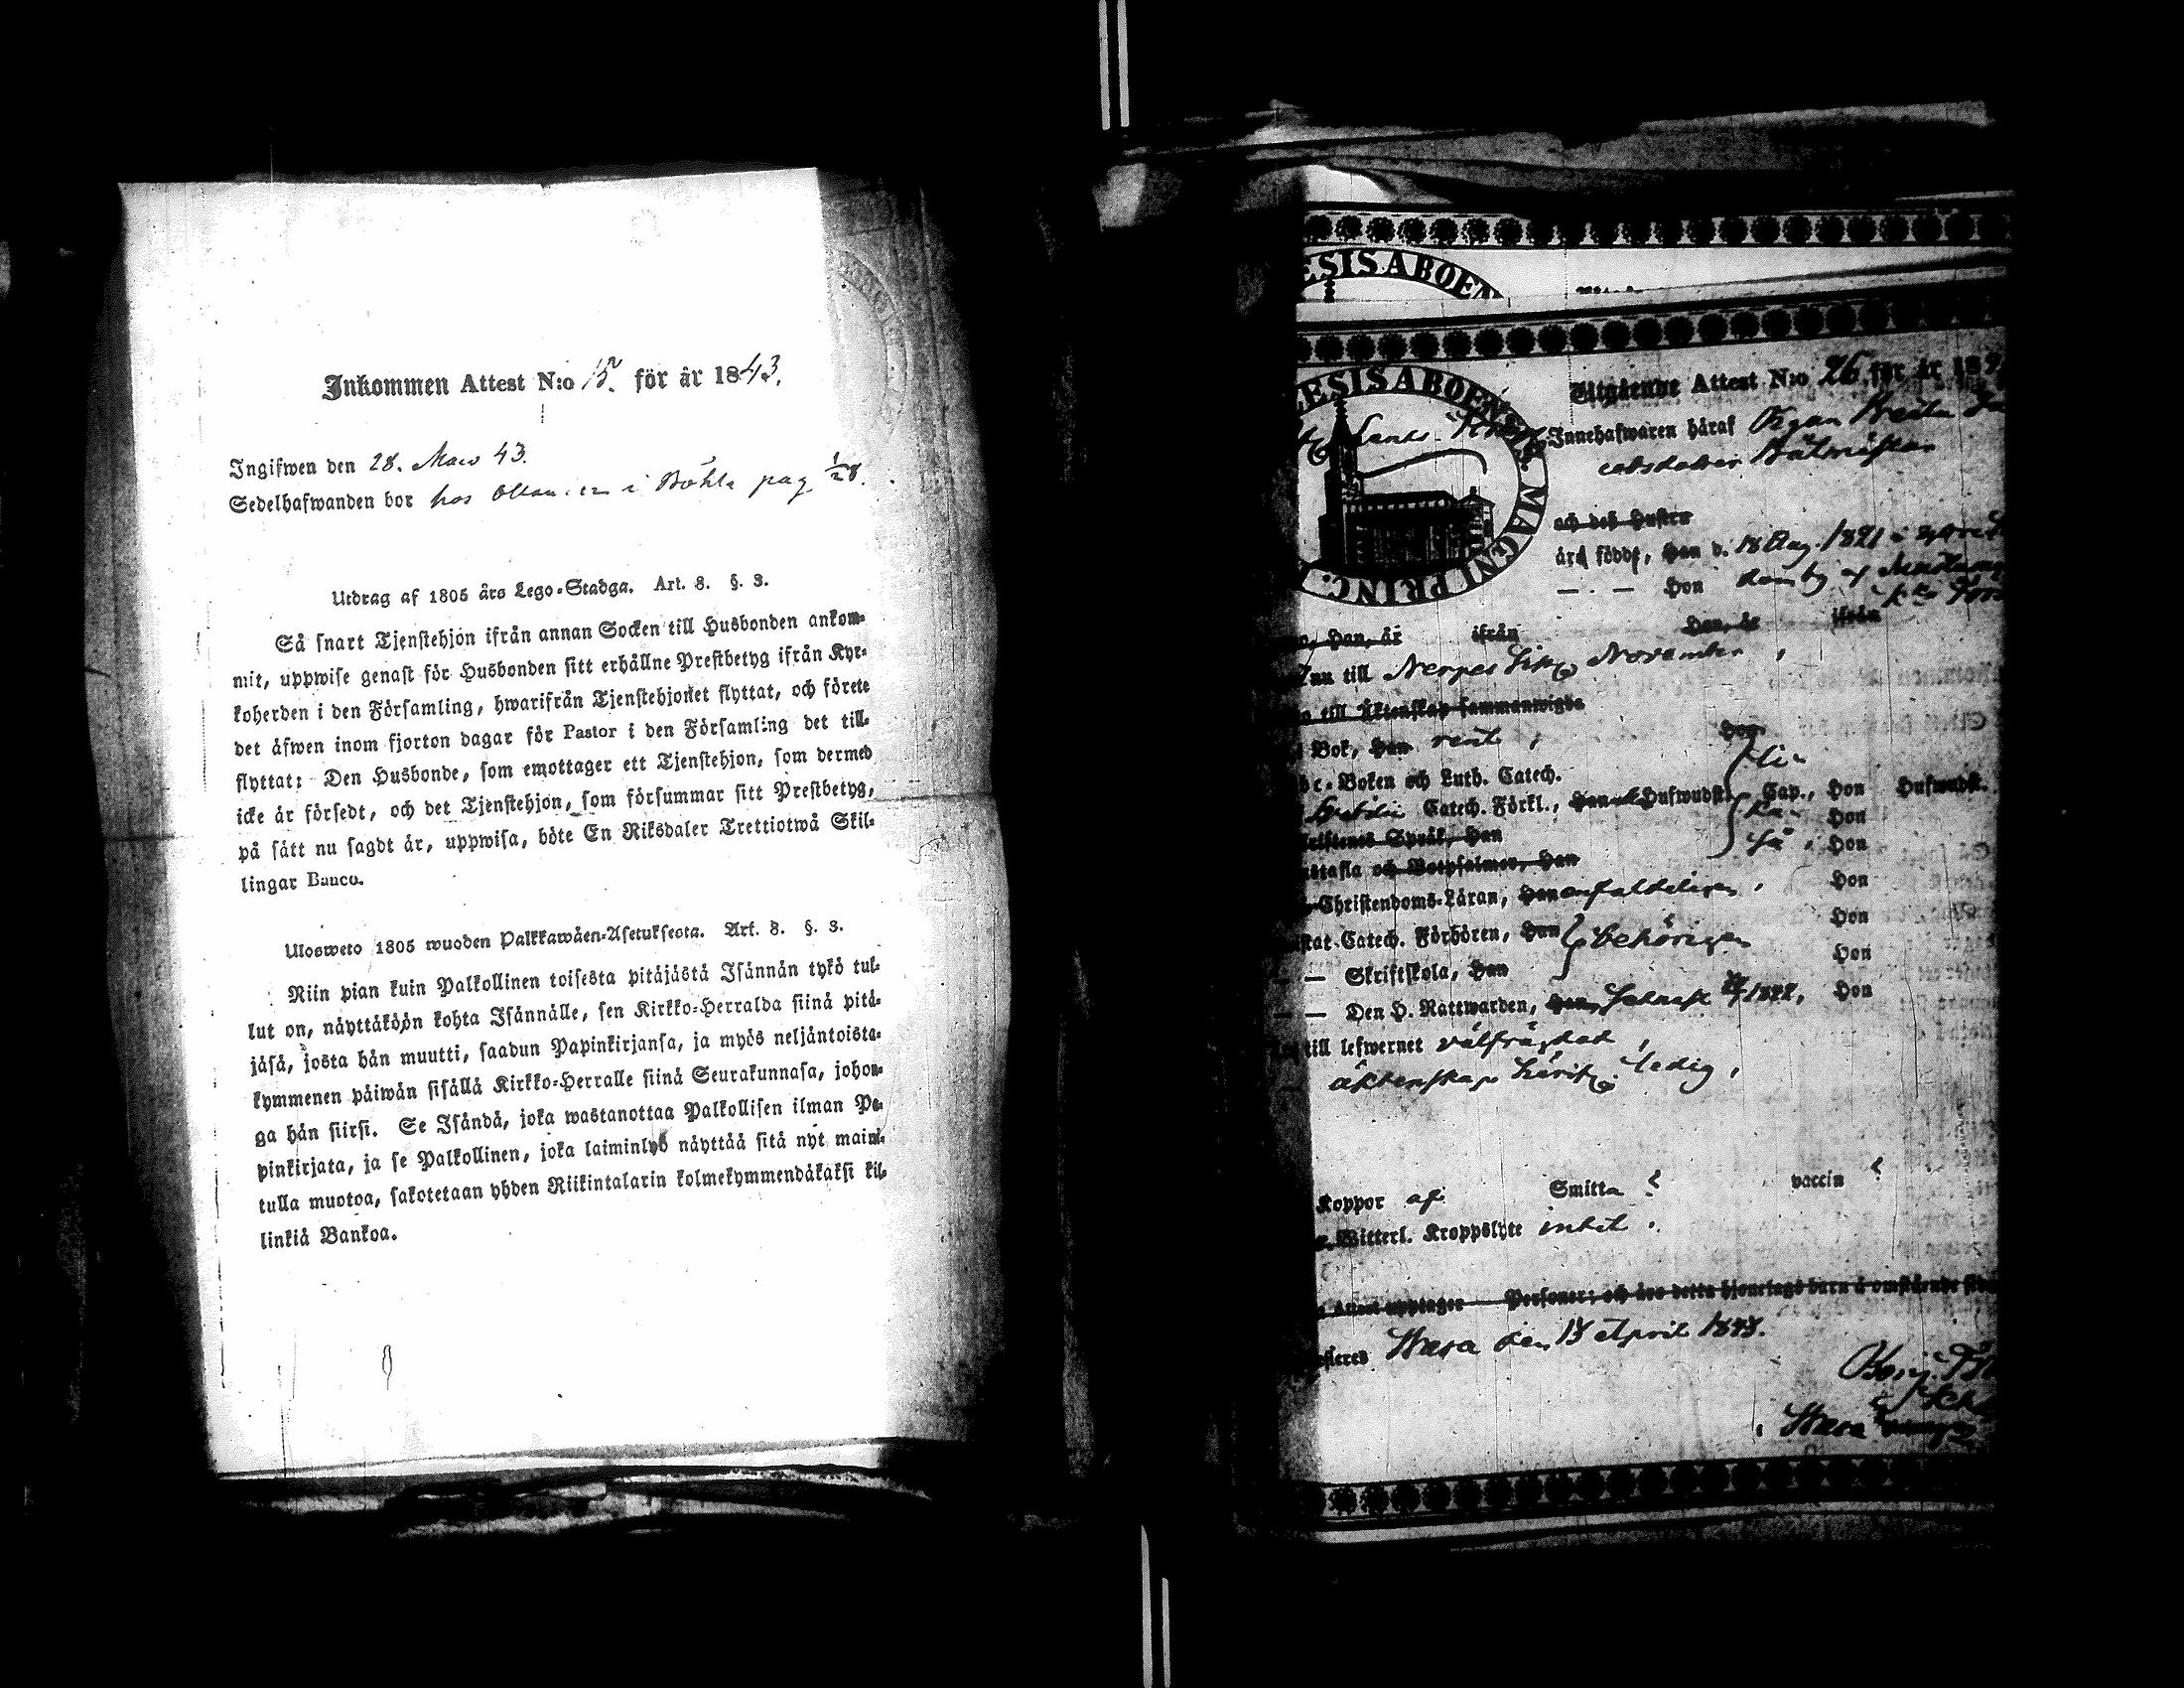 Inkommen Attest N:o 15. för år 1843.
Ingifwen den 28. Mars 43.
Sedelhafwanden bor hos i Böhle pag 1/28.
Utdrag af 1805 års Lego-Stadga. Art. 8. §. 3.
Så snart Tjenstehjon ifrån annan Socken till Husbonden ankom-
mit, uppwise genast för Husbonden sitt erhållne Prestbetyg ifrån Kyr-
koherden i den Församling, hwarifrån Tjenstehjonet flyttat, och förete
det äfwen inom fjorton dagar för Pastor i den Församling det till-
flyttat: Den Husbonde, som emottager ett Tjenstehjon, som dermed
icke är försedt, och det Tjenstehjon, som försummar sitt Prestbetyg,
på sätt nu sagdt är, uppwisa, böte En Riksdaler Trettiotwå Skil-
lingar Banco.
Ulosweto 1805 wuoden Palkkawäen-Asetuksesta. Art. 8. §. 3.
Niin pian kuin Palkollinen toisesta pitäjästä Isännän tykö tul-
lut on, näyttäköön kohta Isännälle, sen Kirkko-Herralda siinä pitä-
jäsä, josta hän muutti, saadun Papinkirjansa, ja myös neljäntoista-
kymmenen päiwän sisällä Kirkko-Herralle siinä Seurakunnasa, johon-
ga hän siirsi. Se Isändä, joka wastanottaa Palkollisen ilman Pa-
pinkirjata, ja se Palkollinen, joka laiminlyö näyttää sitä nyt maini-
tulla muotoa, sakotetaan yhden Riikintalarin kolmekymmendäkaksi kil-
linkiä Bankoa.
ESIS ABOEN
ESIS ABOENS. MAGNI PRINC.
Utgående Attest N:o 26 för år 18
Innehafwaren häraf
och deß Hustru
äro födde, Han d. 18 Aug. 1821 i
— . — Hon
Han, är ifrån Han, är ifrån
nu till Nerpes November,
till Äktenskap sammanwigde
Bok, Han rent, Hon
bc-Boken och Luth. Catech.
Catech. Förkl., Han Hufwudst. Cap., Hon Hufwudst.
ristenes Språk, Han Hon
stafla och Botpsalmer, Han Hon
Christendoms-Läran, Han enfaldeligen, Hon
stat Catech. Förhören, Han behörigen Hon
— Skriftskola, Han Hon
— Den H. Nattwarden, Han senast 1842, Hon
till lefwernet välfrägdad,
äktenskap ledig,
Koppor af Smitta ? vaccin ?
Witterl. Kroppslyte intet.
Attest upptager — Personer; och äro detta hjonelags barn å omstående sid
Wasa den 18 April 1843.
Wasa